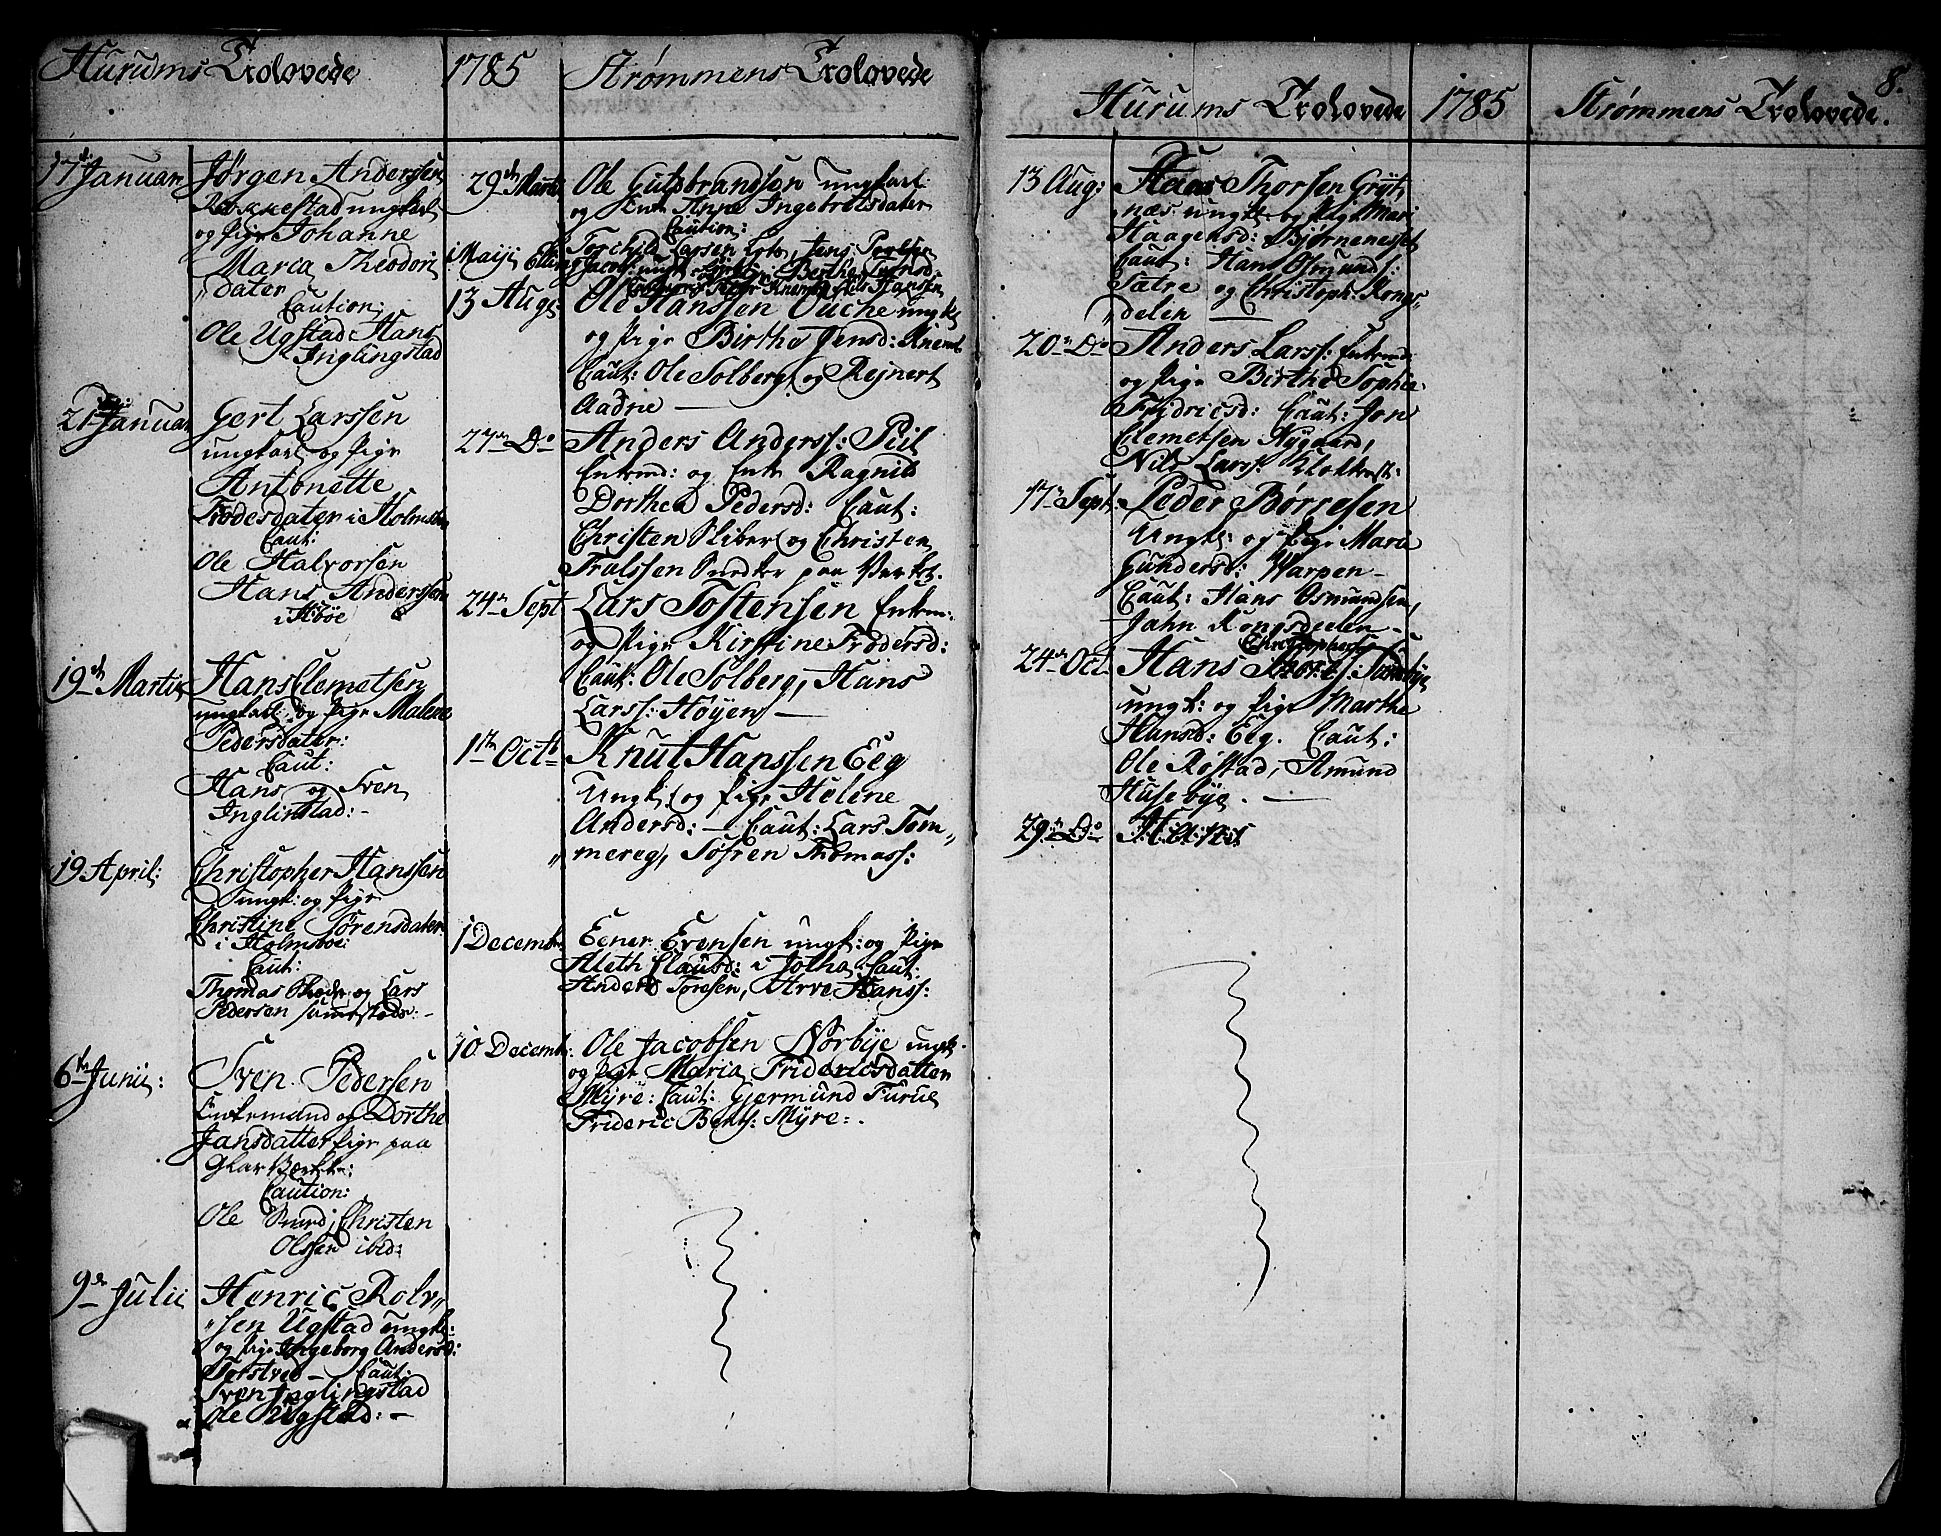 Hurums Trolovede
1785
Strømmens Trolovede
17 Januari
Jørgen Anderssen
Røkkestad ungkarl
og Pige Johanne
Maria Theodori
dater
Caution:
Ole Ugstad Hans
Inglingstad
21 Januari
Gert Larssen
ungkarl og Pige
Antonette
Frodesdater i Holmsboe
Caut:
Ole Halvorsen
Hans Anderssen
i Støe
19de Martii
Hans Clemetsen
ungkarl og Pige Malene
Pedersdater:
Caut:
Hans og Sven
Inglinstad:-
19 April:
Christopher Hanssen
ungk: og Pige
Christine Sørensdater
i Holmsboe:
Caut:
Thomas og Lars
Pedersen sammestæds:-
6te Junii:
Sven Pedersen
Enkemand og Dorthe
Jansdatter Pige paa
Glas Værket:
Caution:
Ole Smed, Christen
Olssen ibid:
9de Julii
Henric Rolv„
„sen Ugstad ungk:
og Pige Ingeborg Andersd:
Torstved - Caut:
Sven Inglingstad
Ole Ugstad:-
29de Martii
Ole Gulsbrandsøn ungkarl
og Enke Anne Ingebretsdater
Caution:
Torchild Larsen, Jens Poulsen
i Maiji
13 Aug:
Ole Hanssen Ouche ungk
og Pige Birthe Jensd: Knem
Caut: Ole Solberg og Rejnert
Aadne —
27de Do
Anders Anderss: Peil
Enkemd: og Enke Ragnild
Dorthea Pedersd: Caut:
Christen Sliber og Christen
Trulssen Smed paa Verket.
24de Sept
Lars Tostensen Enkem:
og Pige Kirstine Frodersd:
Caut: Ole Solberg, Hans
Larss: Høyen —
1te Octb
Knut Hanssen Eeg
Ungk og Pige Helene
Andersd: - Caut: Lars Tom„
„mereg, Søfren Thomass:
1 Decembr
Eener Evensen ungk: og Pige
Aleth Clausd: i Jolha Caut:
Anders Toresen, Arve Hanss:
10 Decemb:
Ole Jacobsen Nørbye ungk.
og Pige Maria Fridericsdatter
Myre: Caut: Gjermund Furue
Frideric Bents: Myre:.
8.
Hurums Trolovede
1785
Strømmens Trolovede.
13 Aug:
Haas Thorsen Gryt„
næs ungk: og Pige Mari
Haagensd: Bjørneneset
Caut: Hans Osmunds:
Sætre og Christoph: Kongs„
„delen —
20de Do
Anders Larss: Enkemd:
og Pige Birthe Sophie
Fridricsd: Caut: Jon
Clemetsen Nygaard,
Nils Larss:
17de Sept:
Peder Børresen
Ungk: og Pige Marie
Gundersd: Warpen -
Caut: Hans Osmundsen,
Jahn Kongsdeelen -
24de Oct.
Christophers
Hans
ungk: og Pige Marthe
Hansd: Eeg. Caut:
Ole Røstad, Amund
Husebye. —
29de Do
Hans